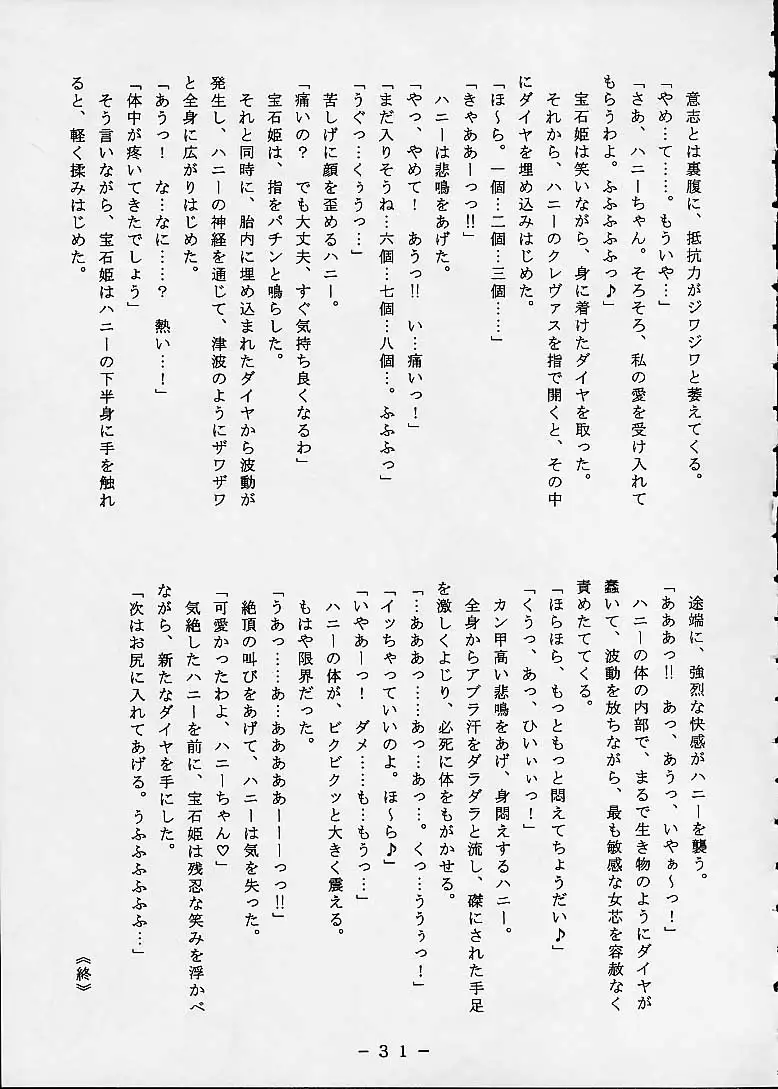 意志とは裏腹に、抵抗力がジワジワと萎えてくる。
「やめ…て……。もういや…」
「さあ、ハニーちゃん。そろそろ、私の愛を受け入れて
もらうわよ。ふふふふふっ♪」
宝石姫は笑いながら、身に着けたダイヤを取った。
それから、ハニーのクレヴァスを指で開くと、その中
にダイヤを埋め込みはじめた。
「ほ〜ら。一個…二個…三個……」
「きゃああーっっ!!」
ハニーは悲鳴をあげた。
「やっ、やめて！　あうっ!!　い…痛いっ！」
「まだ入りそうね…六個…七個…八個…。ふふふっ」
「うぐっ…くぅうっ…」
苦しげに顔を歪めるハニー。
「痛いの？　でも大丈夫、すぐ気持ち良くなるわ」
宝石姫は、指をパチンと鳴らした。
それと同時に、胎内に埋め込まれたダイヤから波動が
発生し、ハニーの神経を通じて、津波のようにザワザワ
と全身に広がりはじめた。
「あうっ！　な…なに……？　熱い…！」
「体中が疼いてきたでしょう」
そう言いながら、宝石姫はハニーの下半身に手を触れ
ると、軽く揉みはじめた。
途端に、強烈な快感がハニーを襲う。
「あああっ!!　あっ、あうっ、いやぁ〜っ！」
ハニーの体の内部で、まるで生き物のようにダイヤが
蠢いて、波動を放ちながら、最も敏感な女芯を容赦なく
責めたててくる。
「ほらほら、もっともっと悶えてちょうだい♪」
「くうっ、あっ、ひいぃぃっ！」
カン甲高い悲鳴をあげ、身悶えするハニー。
全身からアブラ汗をダラダラと流し、磔にされた手足
を激しくよじり、必死に体をもがかせる。
「…あああっ……あっ…あっ…。くっ…うううっ！」
「イッちゃっていいのよ。ほ〜ら♪」
「いやあーっ！　ダメ……も…もうっ…」
ハニーの体が、ビクビクッと大きく震える。
もはや限界だった。
「うあっ……あ…あああああーーーっっ!!」
絶頂の叫びをあげて、ハニーは気を失った。
「可愛かったわよ、ハニーちゃん♡」
気絶したハニーを前に、宝石姫は残忍な笑みを浮かべ
ながら、新たなダイヤを手にした。
「次はお尻に入れてあげる。うふふふふふふ…」
《終》
－３１－